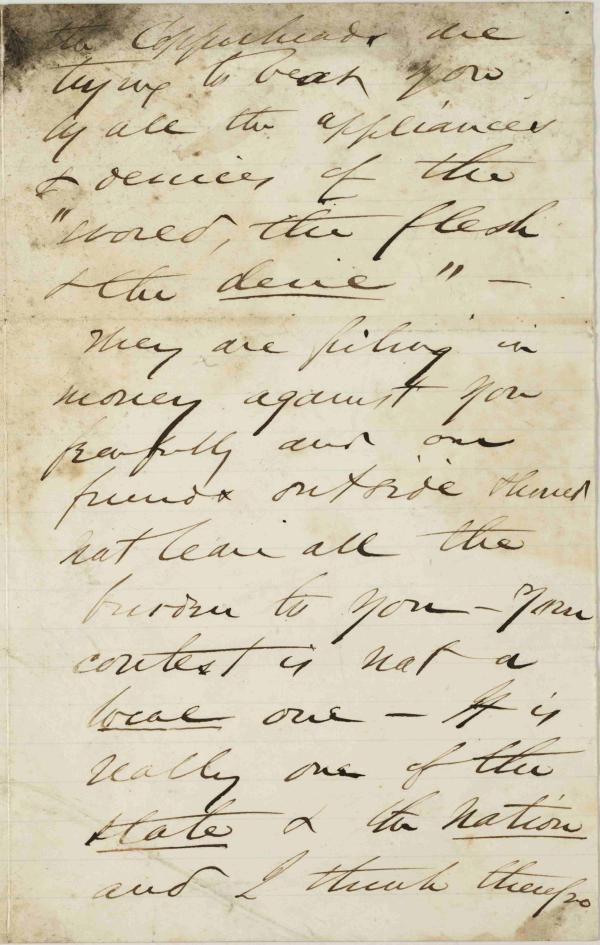 the Copperheads are
trying to beat you
by all the appliances
& devices of the
"world, the flesh
& the devil" —
They are piling in
money against you
fearfully and our
friends outside should
not leave all the
burden to you — Your
contest is not a
local one — It is
really one of the
state & the nation
and I think therefo